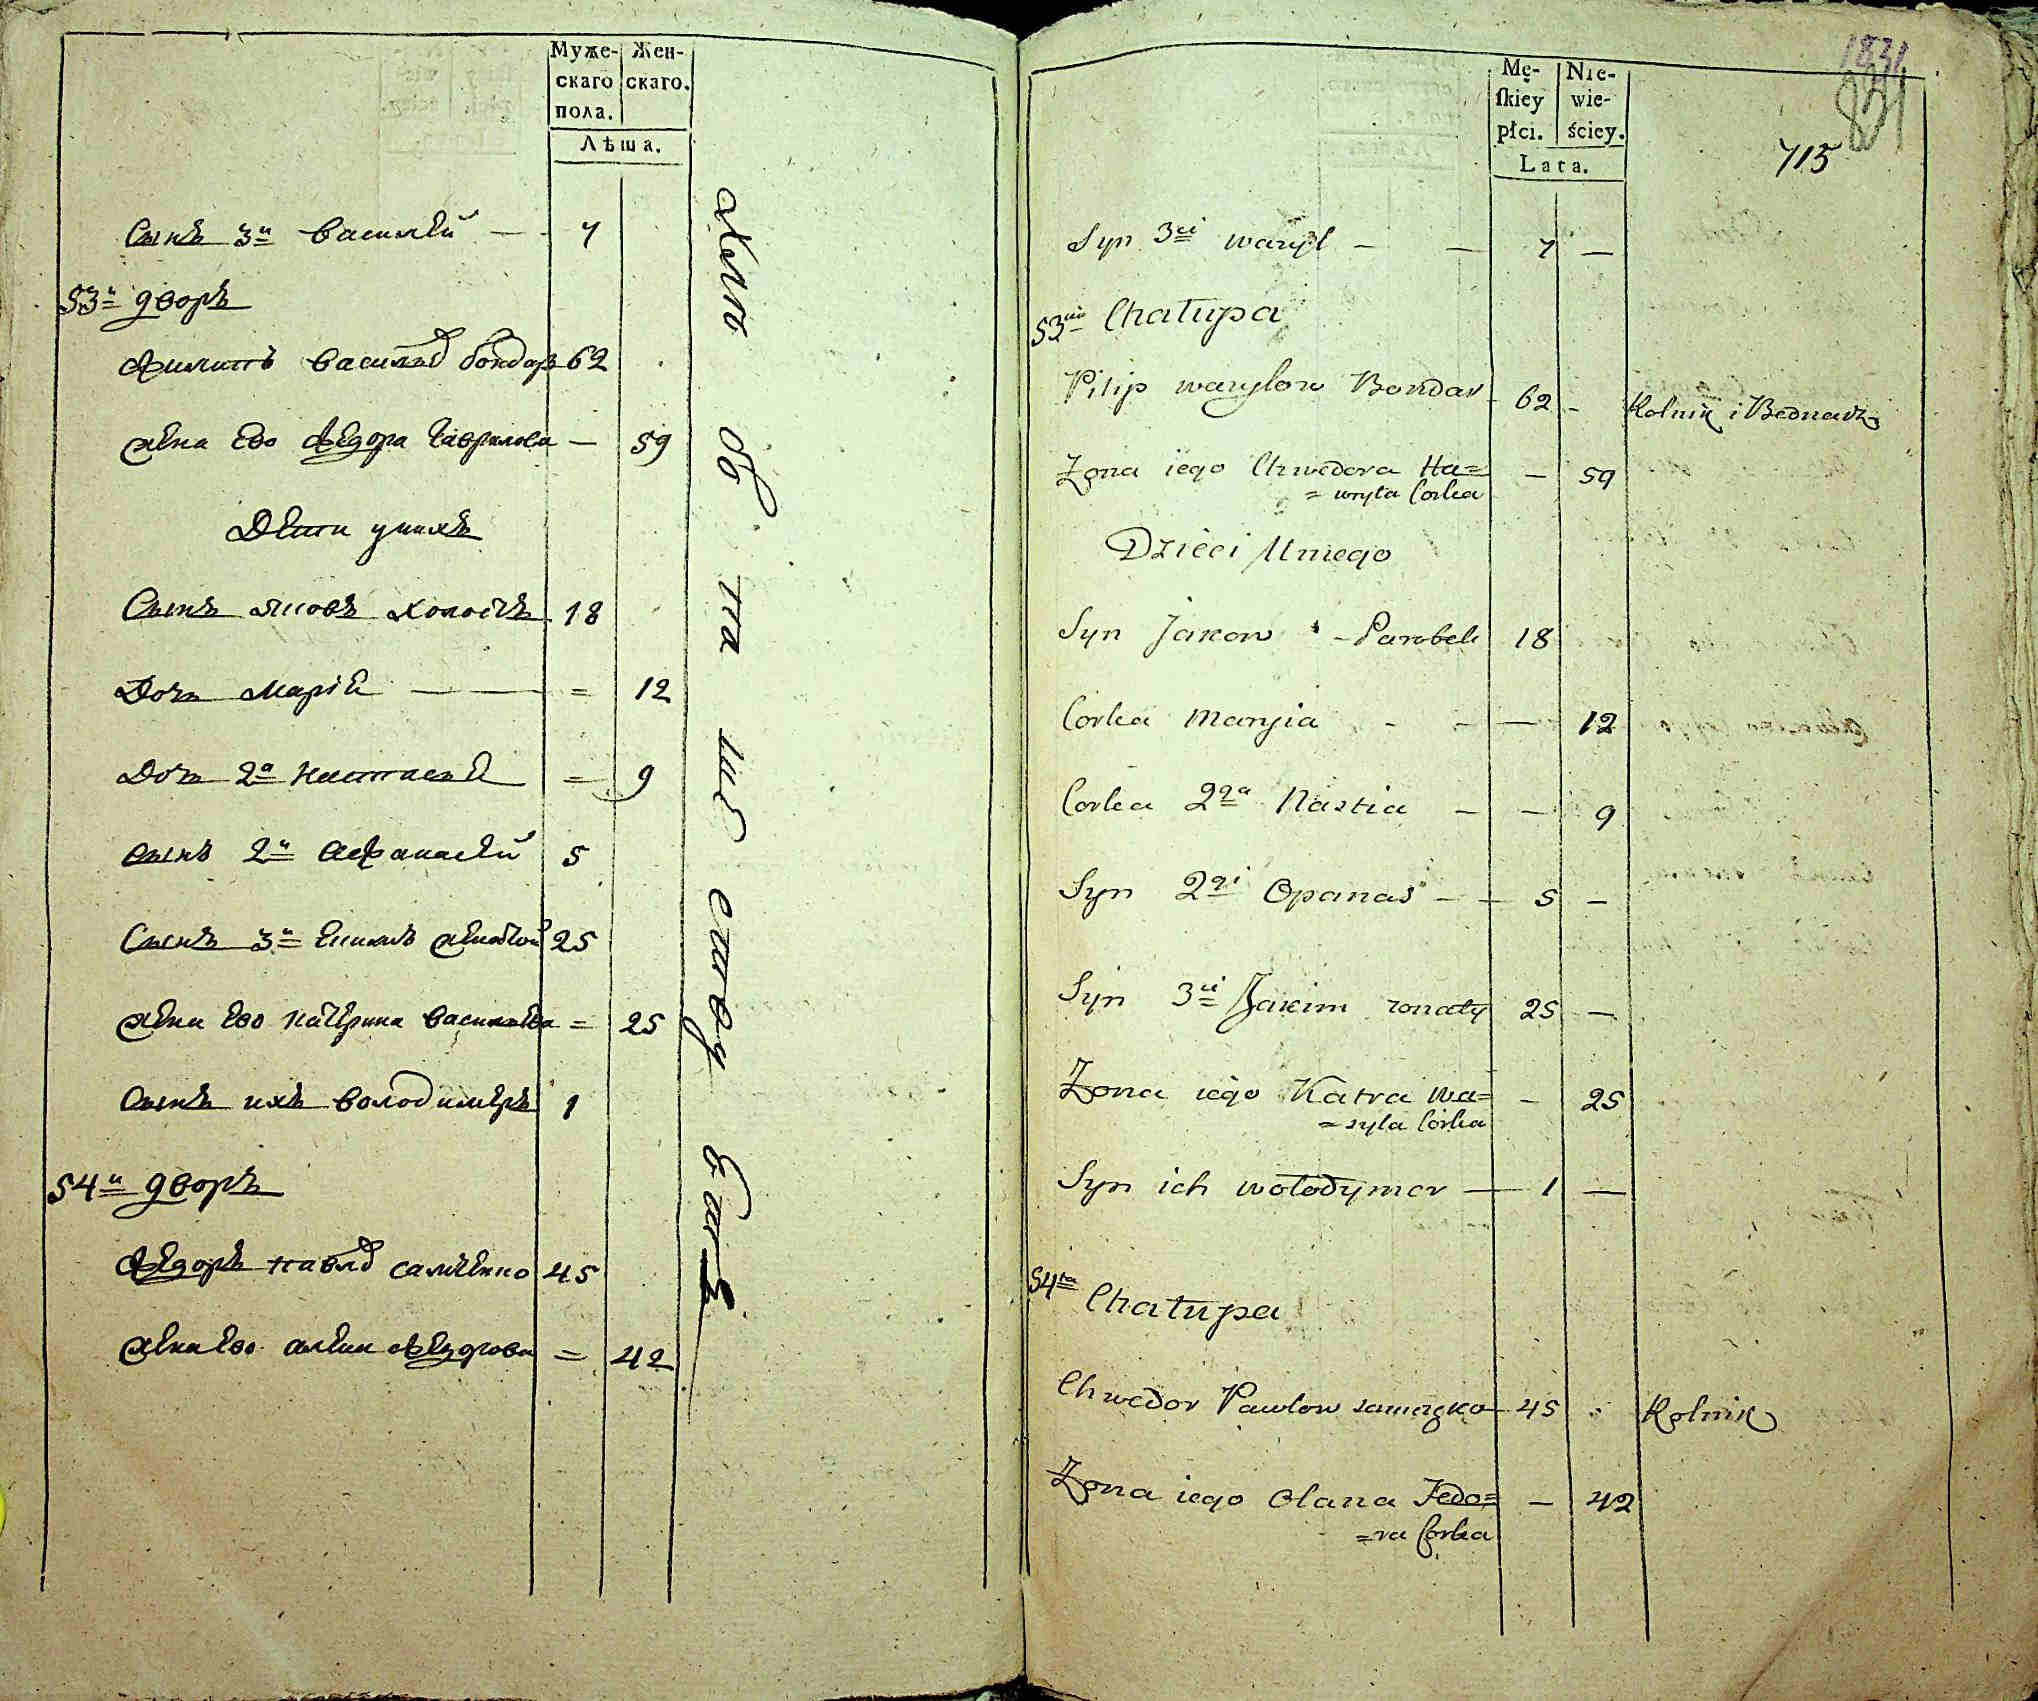 Муже- Жен-
скаго скаго.
пола.
Лѣта.
Сынъ 3й Василей — 7
53й дворъ
Филипъ Василъевъ бондаръ 62
жена Ево Федора Гаврилова — 59
Дети у нихъ
Сынъ Яковъ холостъ 18
Дочь Мариѣ — = 12
Дочь 2я Настасиѣ = 9
Сынъ 2й Афанасей 5
Сынъ 3й Екимъ женатой 25
жена Ево Катерина Василъева = 25
Сынъ ихъ Володимеръ 1
54й дворъ
Федоръ Павловъ 45
жена Ево Алена Федорова = 42
Mę- Nie-
skiey wie-
płci. ściey.
Lata.
1831
715
Syn 3ci Wasyl — — 7 —
53cia Chałupa
Pilip Wasylow Bondar 62 - Rolnik i Bednarz
Żona iego Chwedora Ha=
=wryła Corka — 59
Dzieci Uniego
Syn Jakow - Parobek 18
Corka Maryia - - — 12
Corka 2ga Nastia — — 9
Syn 2gi Opanas — — 5 —
Syn 3ci Jakim zonaty 25 —
Żona iego Katra Wa=
=syla Corka - 25
Syn ich Wołodymer — 1 —
54ta Chałupa
Chwedor Pawłow 45 Rolnik
Żona iego Olana Fedo=
=ra Corka — 42